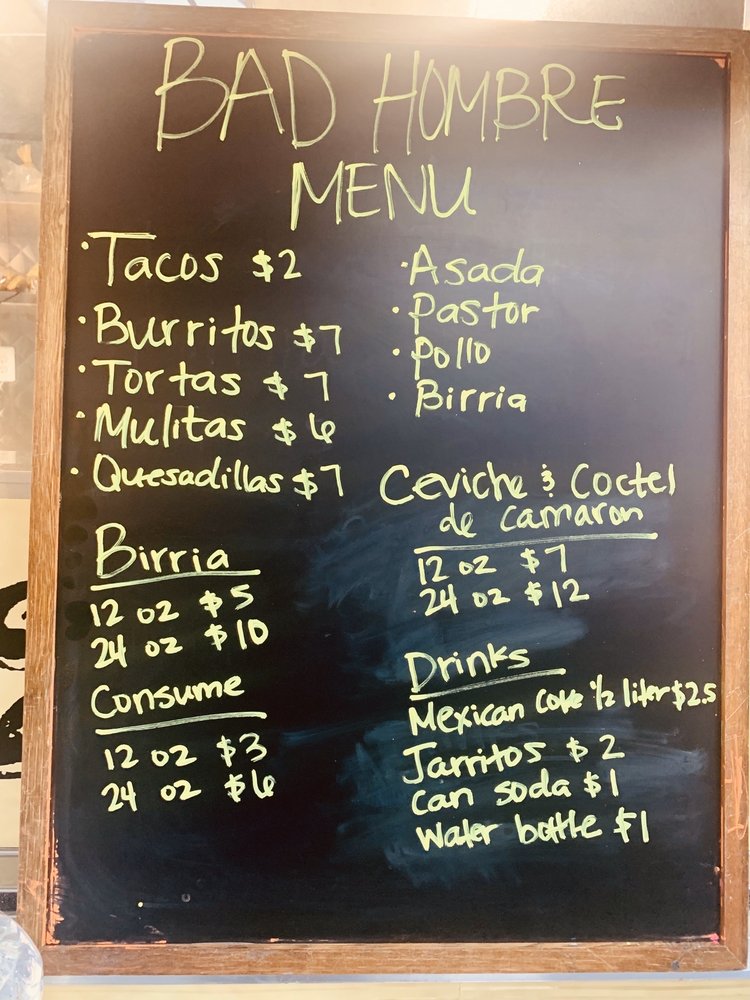 BAD HOMBRE
MENU
• Tacos $2
• Burritos $7
• Tortas $7
• Mulitas $6
• Quesadillas $7
Birria
12 oz $5
24 oz $10
Consume
12 oz $3
24 oz $6
• Asada
• Pastor
• Pollo
• Birria
Ceviche & Coctel
de camaron
12 oz $7
24 oz $12
Drinks
Mexican Coke ½ liter $2.5
Jarritos $2
Can soda $1
Water bottle $1